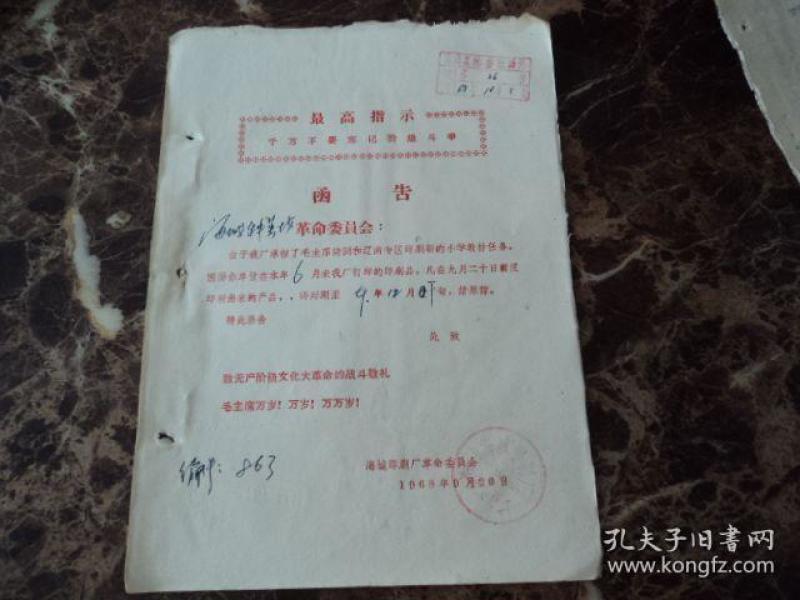 26
最高指示
千万不要忘记阶级斗争
函 告
革命委员会：
由于我厂承担了毛主席诗词和辽南专区印刷新的小学教材任务，
因而你单位在本年6月来我厂订印的印刷品，凡在九月二十日前没
印刷出来的产品，，待对期至 年12月 旬，请原谅。
特此函告
此致
致无产阶级文化大革命的战斗敬礼
毛主席万岁！万岁！万万岁！
编号：863
海城印刷厂革命委员会
1968年9月20日
孔夫子旧书网
www.kongfz.com